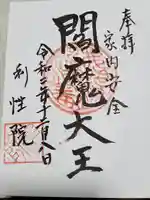 奉拝
家内安全
閻魔大王
令和二年十二月八日
利性院